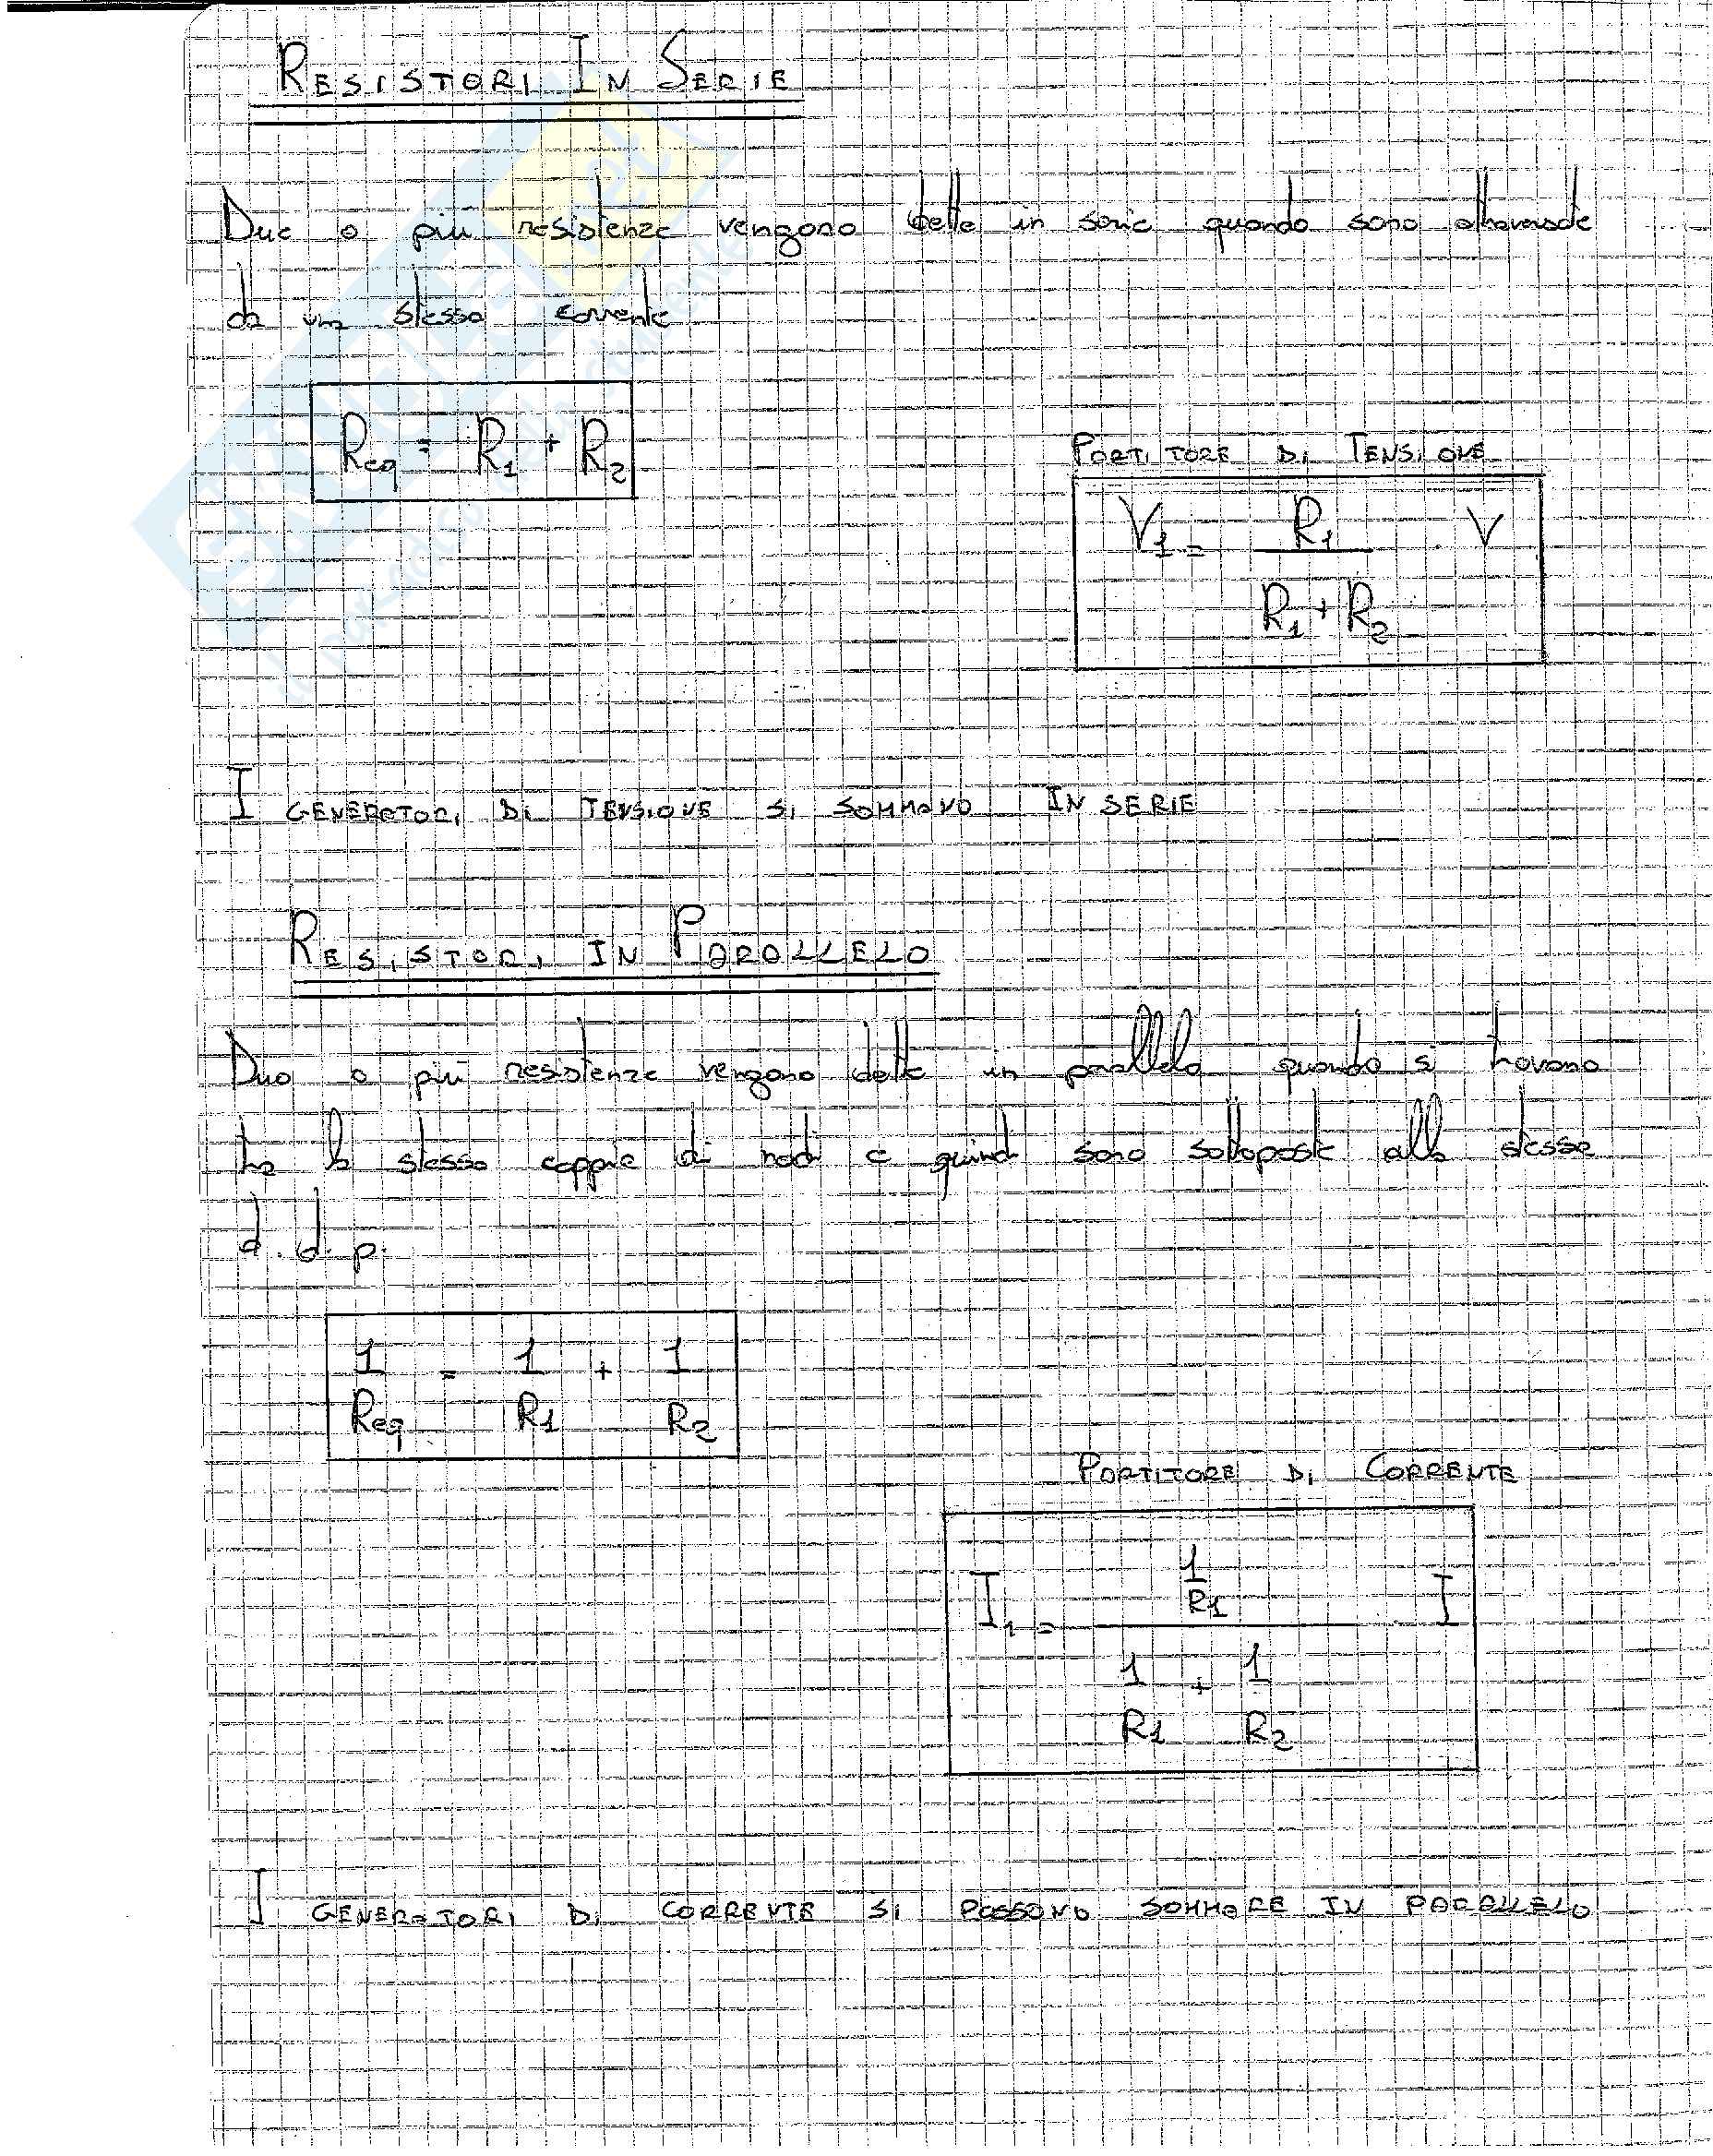 RESISTORI IN SERIE
Due o più resistenze vengono dette in serie quando sono attraversate
da una stessa corrente
Req = R1 + R2
PARTITORE DI TENSIONE
V1 = R1 / (R1 + R2) · V
I GENERATORI DI TENSIONE SI SOMMANO IN SERIE
RESISTORI IN PARALLELO
Due o più resistenze vengono dette in parallelo quando si trovano
tra la stessa coppia di nodi e quindi sono sottoposte alla stessa
d.d.p.
1/Req = 1/R1 + 1/R2
PARTITORE DI CORRENTE
I1 = (1/R1) / (1/R1 + 1/R2) · I
I GENERATORI DI CORRENTE SI POSSONO SOMMARE IN PARALLELO